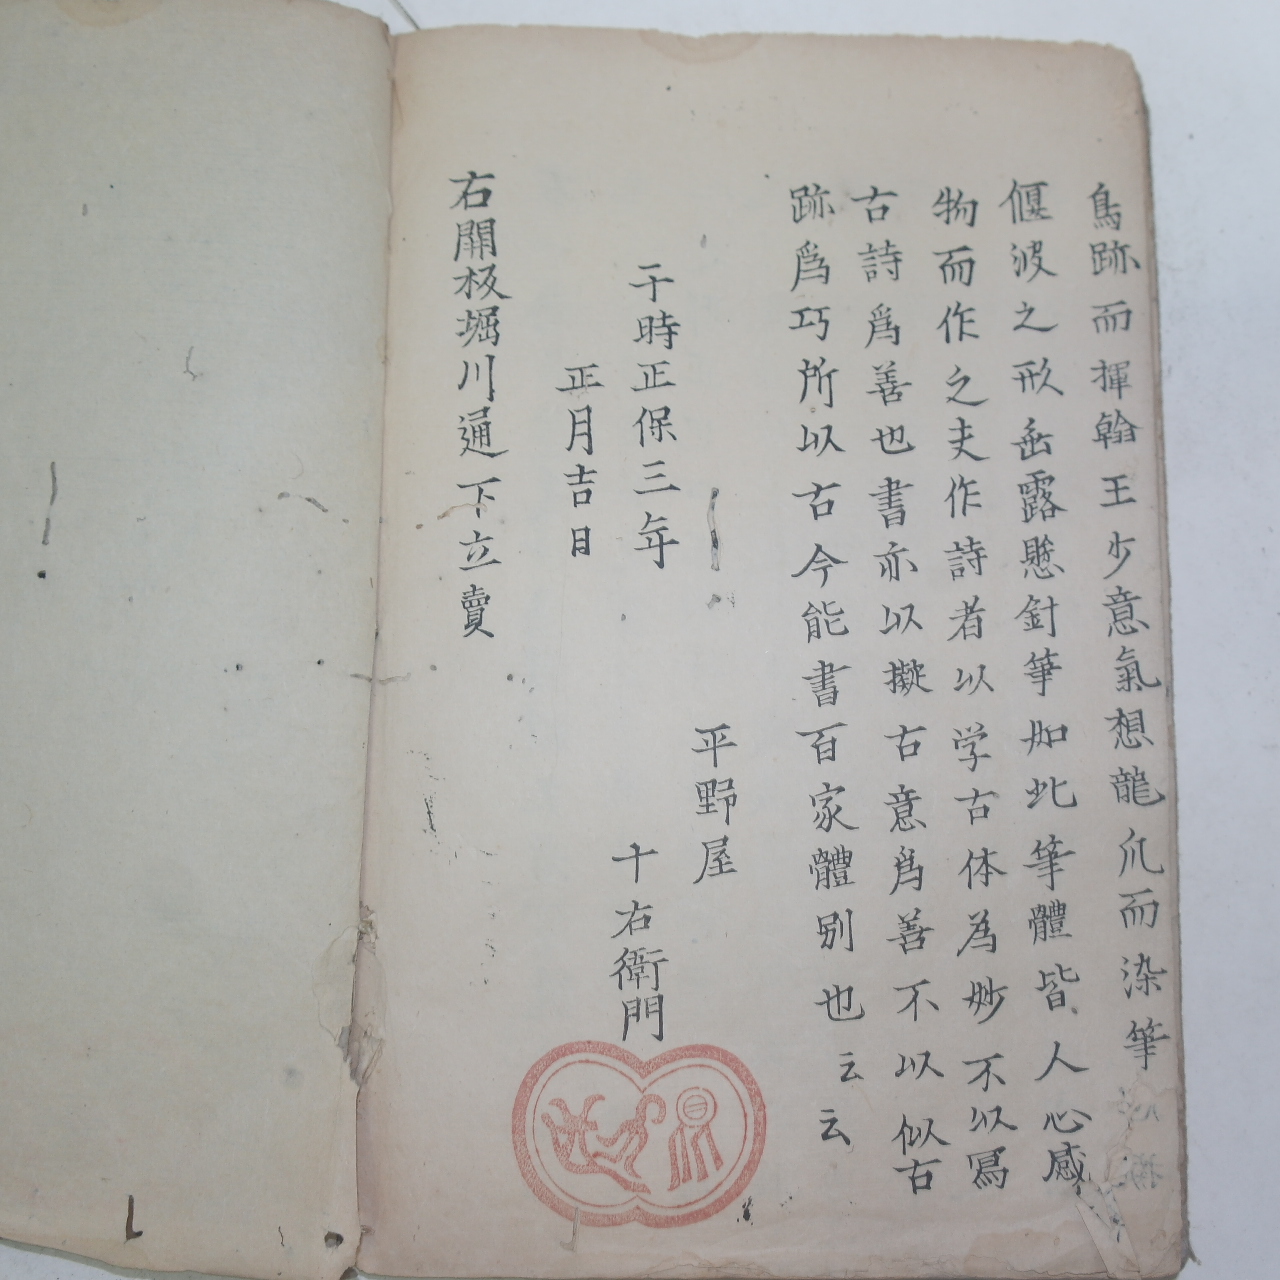 鳥跡而揮翰王少意氣想龍爪而染筆
偃波之形垂露懸針筆如此筆體皆人心感
物而作之夫作詩者以学古体為妙不以寫
古詩爲善也書亦以擬古意爲善不以似古
跡爲巧所以古今能書百家體別也云云
平野屋
于時正保三年
十右衛門
正月吉日
右開板堀川通下立賣